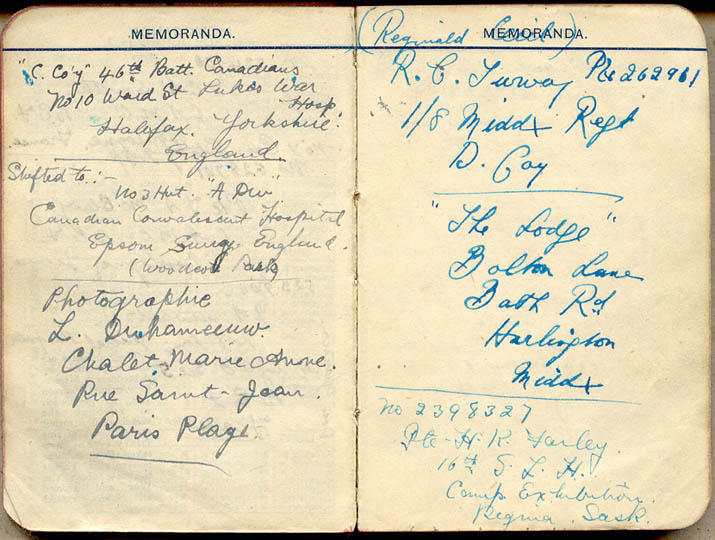 MEMORANDA.
"C. Co'y" 46th Batt. Canadians
No 10 Ward St Lukes War
Hosp.
Halifax. Yorkshire.
England.
Shifted to:-
No 3 Hut. "A Div"
Canadian Convalescent Hospital
Epsom Surrey England.
(Woodcote Park)
Photographie
L.
Chalet Marie Anne.
Rue Saint-Jean.
Paris Plage
MEMORANDA.
(Reginald Cecil)
R. C. Turvey Pte 262961
1/8 Middx Regt
D. Coy
"The Lodge"
Bolton Lane
Bath Rd
Harlington
Middx
No 2398327
Pte. H. R. Farley.
16th S. L. H.
Camp Exhibition.
Regina. Sask.